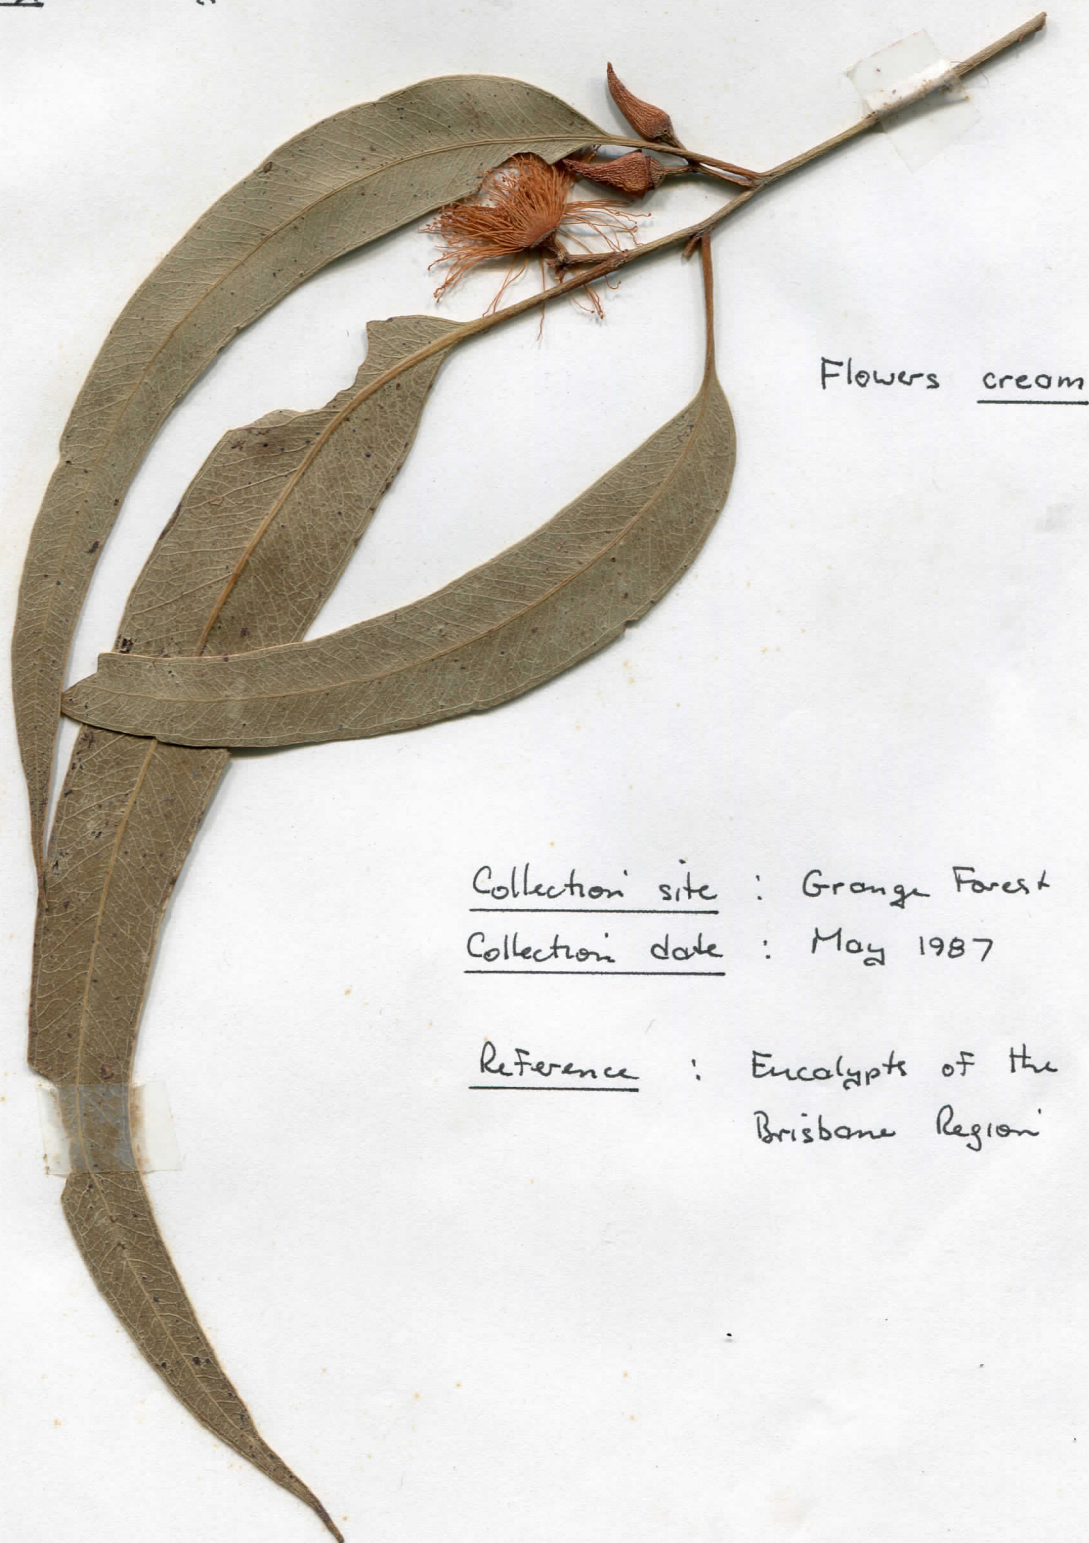 Flowers cream
Collection site : Grange Forest
Collection date : May 1987
Reference : Eucalypts of the
Brisbane Region